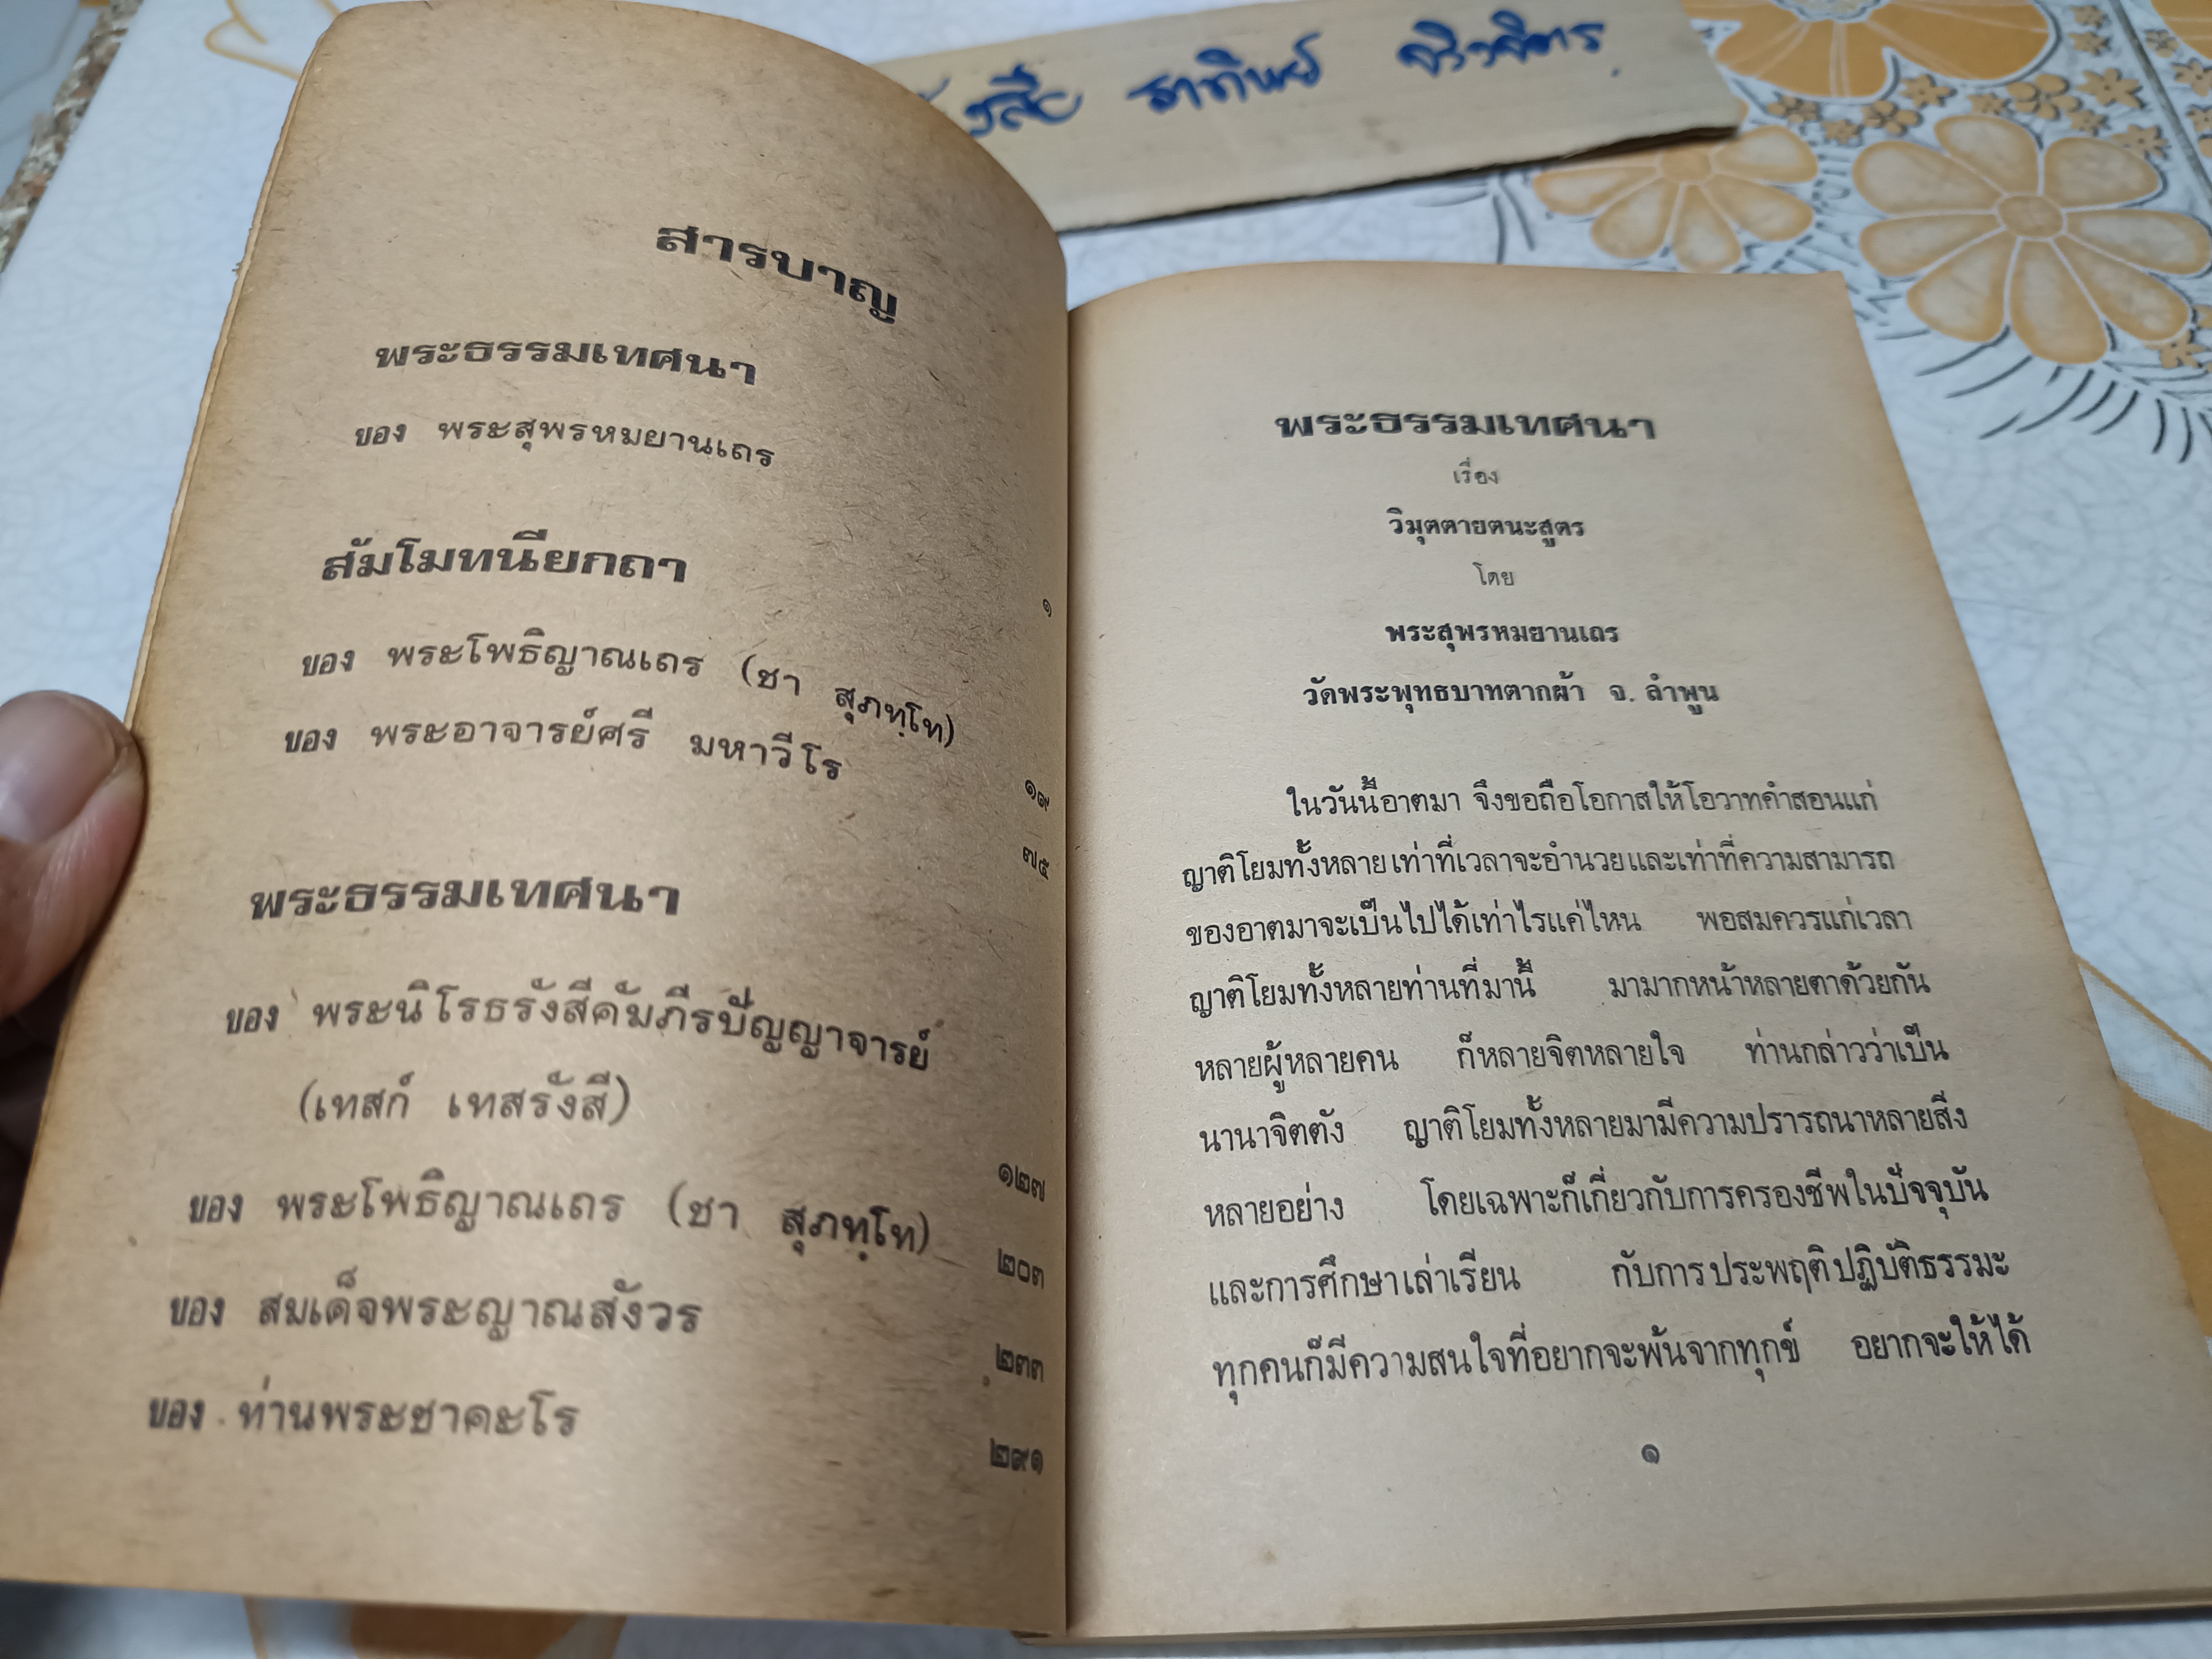 สารบาญ
พระธรรมเทศนา
ของ พระสุพรหมยานเถร ๑
สัมโมทนียกถา
ของ พระโพธิญาณเถร (ชา สุภทฺโท) ๑๙
ของ พระอาจารย์ศรี มหาวีโร ๗๕
พระธรรมเทศนา
ของ พระนิโรธรังสีคัมภีรปัญญาจารย์
(เทสก์ เทสรังสี) ๑๒๗
ของ พระโพธิญาณเถร (ชา สุภทฺโท) ๒๐๓
ของ สมเด็จพระญาณสังวร ๒๓๓
ของ ท่านพระชาคะโร ๒๙๑
พระธรรมเทศนา
เรื่อง
วิมุตตายตนะสูตร
โดย
พระสุพรหมยานเถร
วัดพระพุทธบาทตากผ้า จ. ลำพูน
ในวันนี้อาตมา จึงขอถือโอกาสให้โอวาทคำสอนแก่
ญาติโยมทั้งหลายเท่าที่เวลาจะอำนวยและเท่าที่ความสามารถ
ของอาตมาจะเป็นไปได้เท่าไรแค่ไหน พอสมควรแก่เวลา
ญาติโยมทั้งหลายท่านที่มานี้ มามากหน้าหลายตาด้วยกัน
หลายผู้หลายคน ก็หลายจิตหลายใจ ท่านกล่าวว่าเป็น
นานาจิตตัง ญาติโยมทั้งหลายมามีความปรารถนาหลายสิ่ง
หลายอย่าง โดยเฉพาะก็เกี่ยวกับการครองชีพในปัจจุบัน
และการศึกษาเล่าเรียน กับการประพฤติปฏิบัติธรรมะ
ทุกคนก็มีความสนใจที่อยากจะพ้นจากทุกข์ อยากจะให้ได้
๑